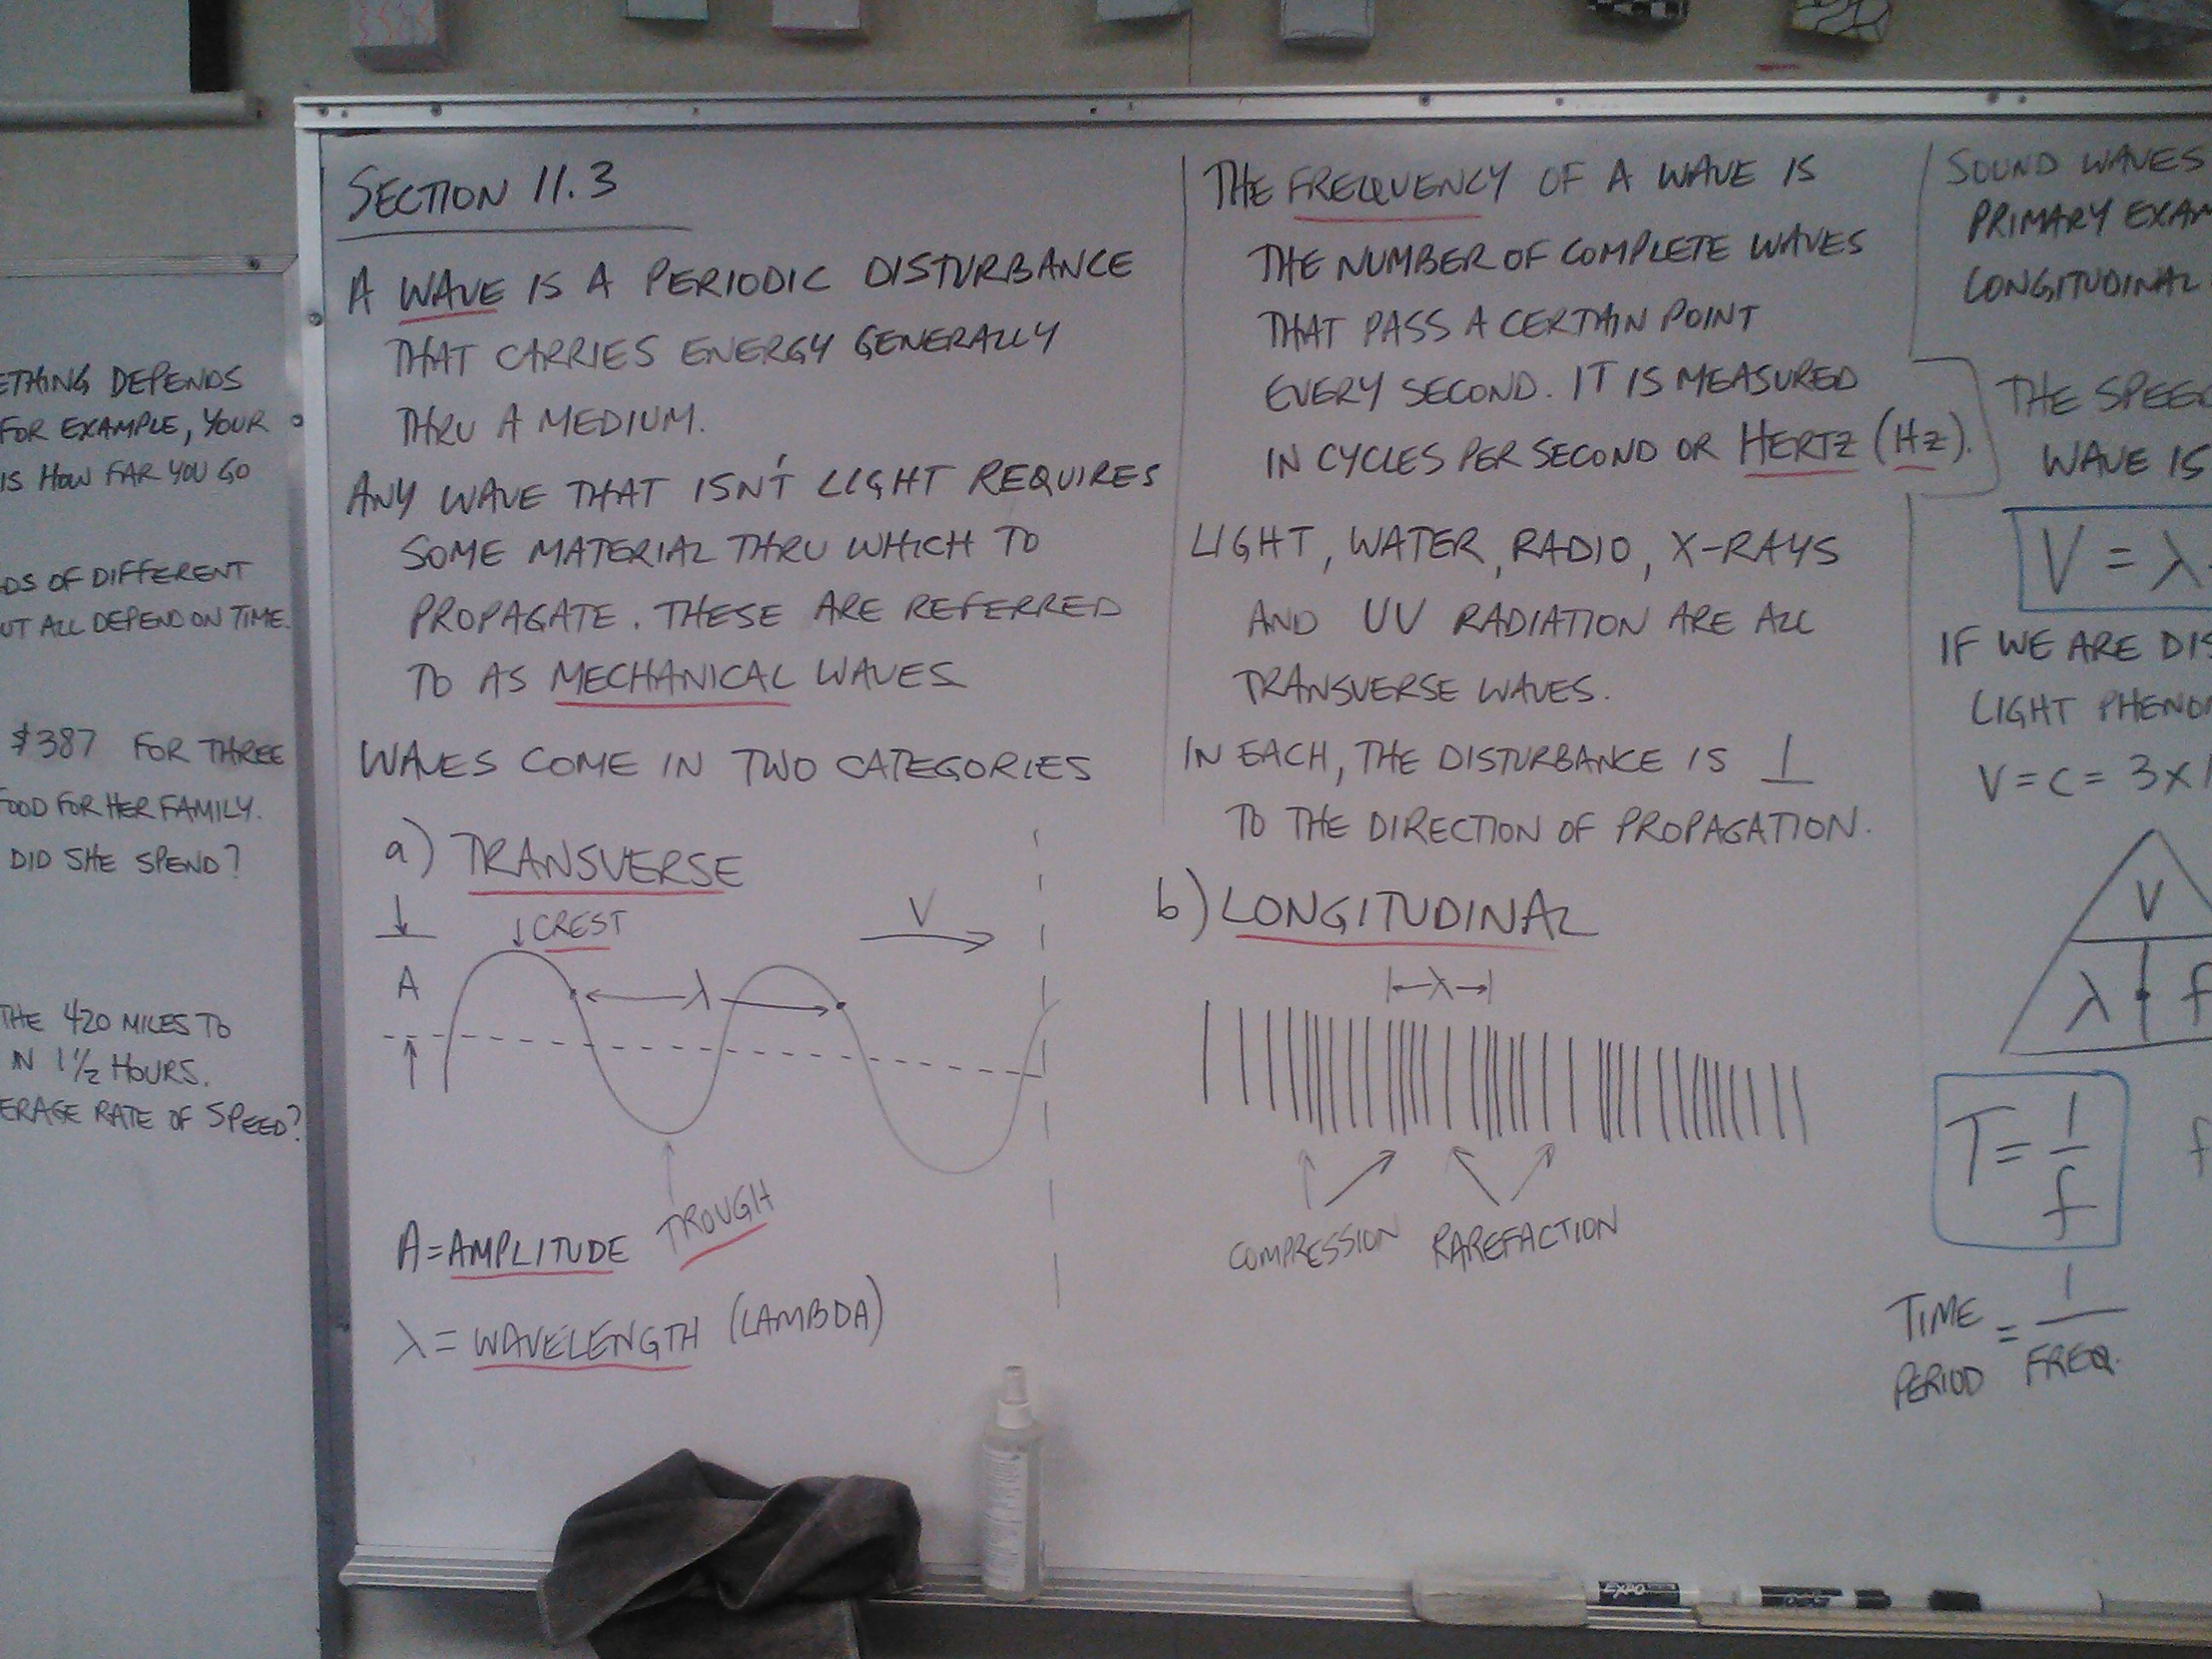 ETHING DEPENDS
FOR EXAMPLE, YOUR
IS HOW FAR YOU GO
DS OF DIFFERENT
UT ALL DEPEND ON TIME.
$387 FOR THREE
FOOD FOR HER FAMILY.
DID SHE SPEND?
THE 420 MILES TO
IN 1 1/2 HOURS.
ERAGE RATE OF SPEED?
SECTION 11.3
A WAVE IS A PERIODIC DISTURBANCE
THAT CARRIES ENERGY GENERALLY
THRU A MEDIUM.
ANY WAVE THAT ISN'T LIGHT REQUIRES
SOME MATERIAL THRU WHICH TO
PROPAGATE. THESE ARE REFERRED
TO AS MECHANICAL WAVES
WAVES COME IN TWO CATEGORIES
a) TRANSVERSE
CREST
V
A
λ
TROUGH
A = AMPLITUDE
λ = WAVELENGTH (LAMBDA)
THE FREQUENCY OF A WAVE IS
THE NUMBER OF COMPLETE WAVES
THAT PASS A CERTAIN POINT
EVERY SECOND. IT IS MEASURED
IN CYCLES PER SECOND OR HERTZ (Hz).
LIGHT, WATER, RADIO, X-RAYS
AND UV RADIATION ARE ALL
TRANSVERSE WAVES.
IN EACH, THE DISTURBANCE IS ⊥
TO THE DIRECTION OF PROPAGATION.
b) LONGITUDINAL
λ
COMPRESSION RAREFACTION
SOUND WAVES
PRIMARY EXAM
LONGITUDINAL
THE SPEED
WAVE IS
V = λ
IF WE ARE DIS
LIGHT PHENO
V = C = 3 x 1
V
λ · f
T = 1/f
f
TIME PERIOD = 1/FREQ.
EXPO